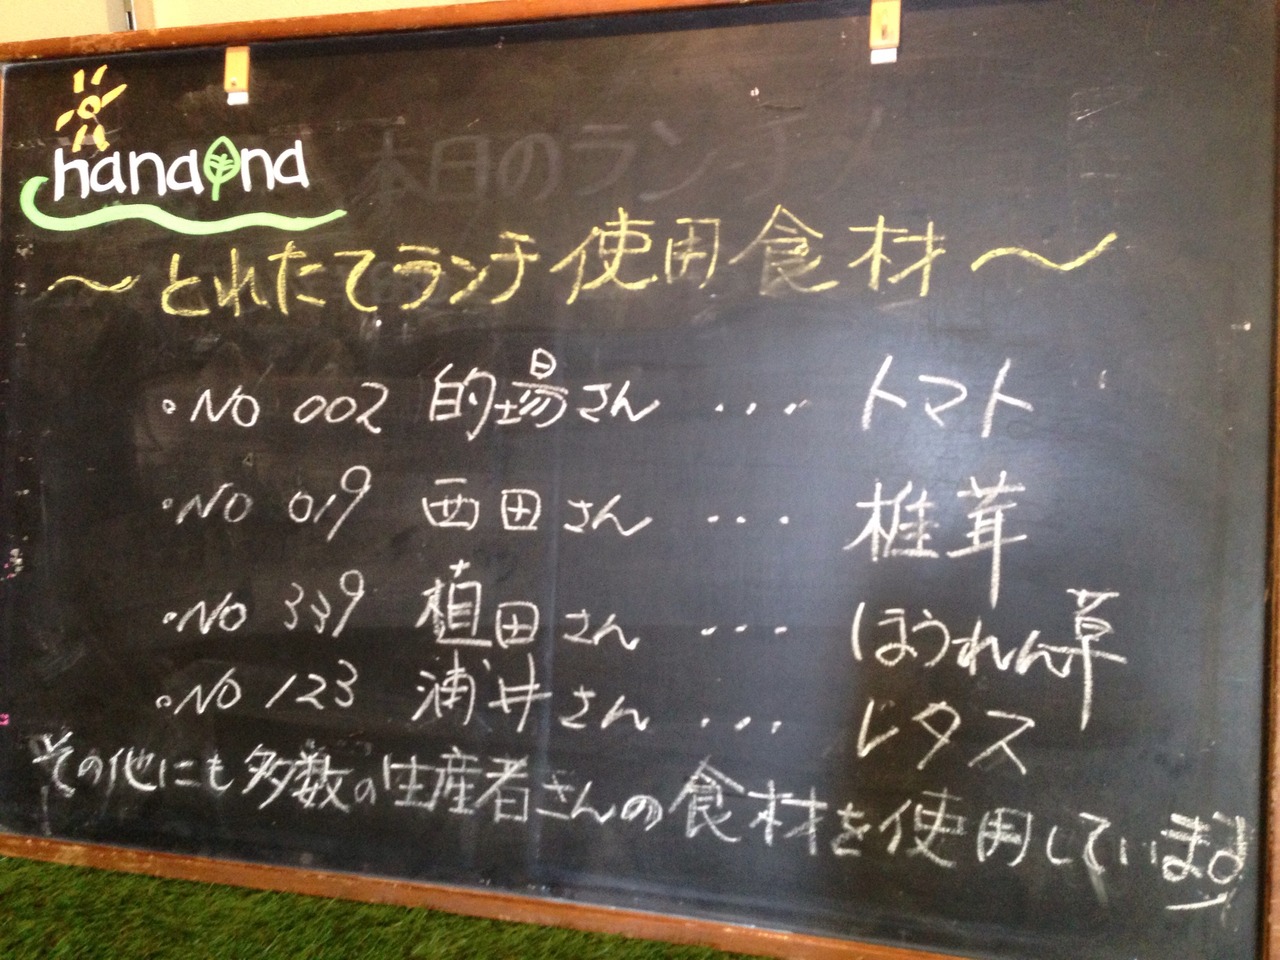 hanaana
本日のランチメ
〜とれたてランチ使用食材〜
・NO 002 的場さん ... トマト
・NO 019 西田さん ... 椎茸
・NO 339 植田さん ... ほうれん草
・NO 123 浦井さん ... レタス
その他にも多数の生産者さんの食材を使用しています